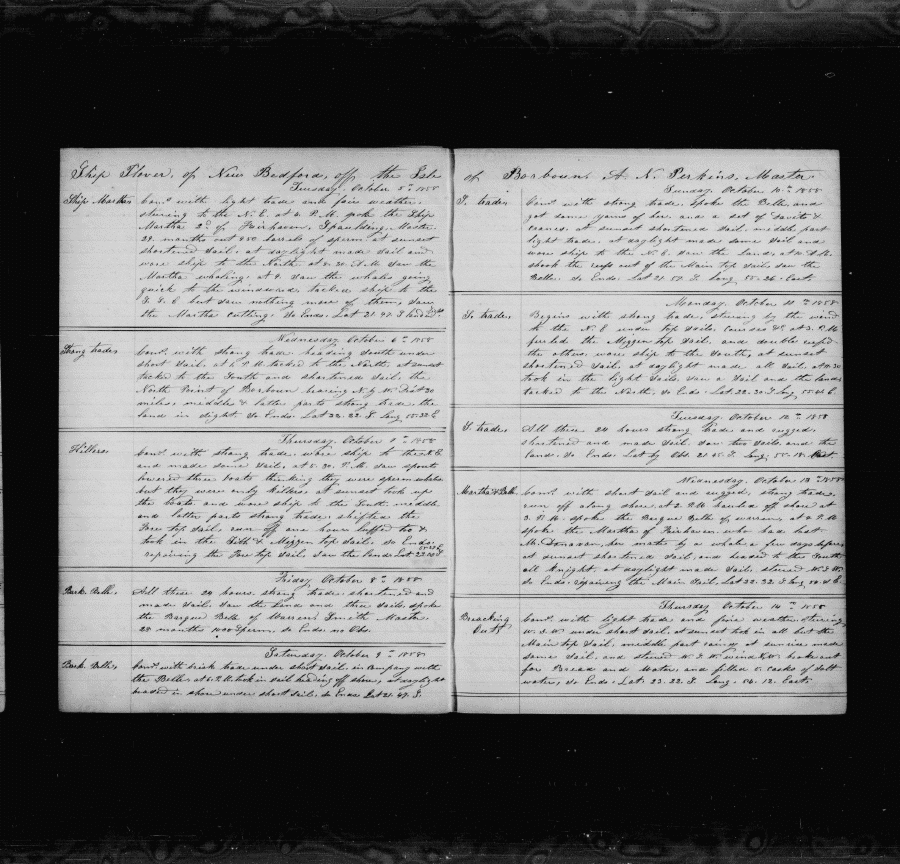 Ship Plover, of New Bedford, off the Isle
Tuesday October 5th 1858
Ship Martha
Com'd with light trade and fair weather.
stering to the N. E. at 2. P.M. spoke the Ship
Martha 2d of Fairhaven, Spaulding, Master
29. months out 850 barrels of sperm. at sunset
shortened sail. at daylight made sail and
wore ship to the North. at A.M. saw the
Martha whaling. at 9. saw the whales going
quick to the windward. tacked ship to the
S. S. E. but saw nothing more of them, saw
the Martha cutting. So Ends. Lat 21. 47. S
Wednesday October 6th 1858
Strong trades
Com'd. with strong trade heading South under
short sail. at P.M. tacked to the North. at sunset
tacked to the South and shortened sail. the
North Point of Borboun bearing N. by W. Dist 20
miles, middle & latter parts strong trade. the
land in sight. So Ends. Lat 22. 22. S Long 55. 32 E
Thursday October 7th 1858
Killers
Com'd. with strong trade. wore ship to the N. E
and made some sail. at 5. 30. P.M. saw spouts
lowered three boats thinking they were sperm whales
but they were only Killers. at sunset took up
the boats and wore ship to the South. middle
and latter parts strong trade. shifted the
Fore top sail. run off one hour luffed to &
took in the Jibb & Mizzen top sail. So Ends.
repairing the Fore top sail. saw the land. Lat 22. 20 S
Friday October 8th 1858
Bark Belle.
All these 24 hours strong trade. shortened and
made sail. saw the land and three sails. spoke
the Barque Belle of Warren, Smith Master
25 months sperm. So Ends. no Obs.
Saturday October 9th 1858
Bark Belle.
Com'd. with brisk trade under short sail. in Company with
the Belle. at 5. P.M. took in sail heading off shore, at daylight
headed in shore under short sail. So Ends Lat 21. 47. S.
of Borboun A. N. Perkins, Master.
Sunday October 10th 1858
S. trades
Com'd with strong trade. spoke the Belle, and
got some yams of her. and a set of davits &
cranes. at sunset shortened sail. middle part
light trade. at daylight made some sail and
wore ship to the N. E. saw the land. at A.M.
shook the reefs out of the Main top sail. saw the
Belle. So Ends. Lat 21. 57. S. Long 55. 26. East.
Monday October 11th 1858
S. trades
Begins with strong trade, stering by the wind
to the N. E under top sails. Courses &c. at 3. P.M
furled the Mizzen top sail. and double reef'd
the others. wore ship to the South, at sunset
shortened sail. at daylight made all sail. at 10. 30
took in the light sails. saw a sail and the land.
tacked to the North. So Ends. Lat. 22. 30. S Long. 55. E.
Tuesday October 12th 1858
S. trades
All these 24 hours strong trade and rugged.
shortened and made sail. saw two sails and the
land. So Ends. Lat by Obs. 21. S. Long 55. 18. East
Wednesday October 13th 1858
Martha & Belle
Com'd. with short sail and rugged, strong trade
run off along shore. at 2. P.M hauled off shore at
3. P.M. spoke the Barque Belle of Warren, at P.M
spoke the Martha of Fairhaven who had lost
Mr. Donavan, her mate by a whale a few days before,
at sunset shortened sail. and headed to the South
all Knight. at daylight made sail. stered W. S. W.
So Ends. repairing the Main sail. Lat 22. 22. S Long E
Thursday October 14th 1858
Breaking Out
Com'd. with light trade and fine weather, stering
W. S. W. under short sail. at sunset took in all but the
Main top sail, middle part rainy. at sunrise made
some sail. and stered W. S. W broke out
for Bread and Water, and filled 5. casks of salt
water, So Ends. Lat. 23. 22. S. Long. 54. 12. East.